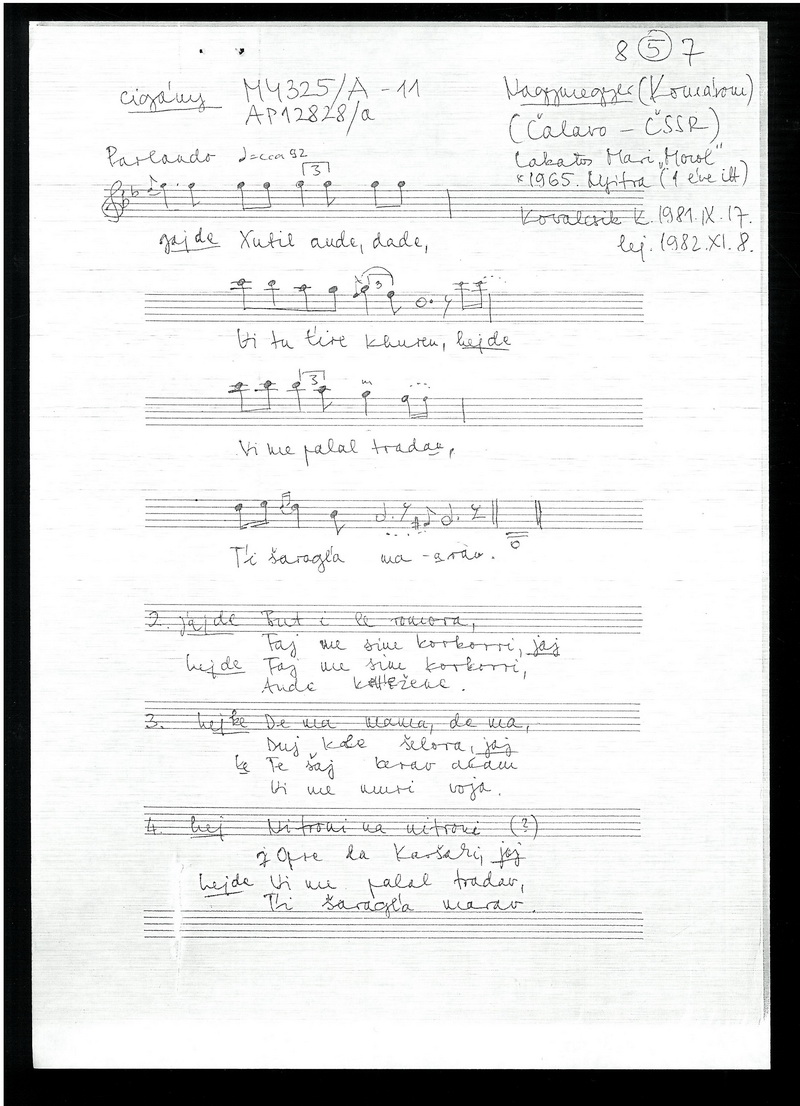 8 5 7
cigány MY325/A - 11
AP12828/a
Nagymegyer (Komárom)
(Čalavo – ČSSR)
Lakatos Mari „Morol"
*1965. Nyitra (1 éve itt)
Kovalcsik K. 1981.IX.17.
lej. 1982.XI.8.
Parlando ♩=cca 92
3
jajde Xutil aude, dade,
3
Vi tu ťire khuren, hejde
3
Vi me palal tradav,
Ťi šaragľa ma-arav.
2. jajde But i le romora,
Taj me sine korkorri, jaj
hejde Taj me sine korkorri,
Ande
3. hejke De ma mama, de ma,
Duj kole šelora, jaj
ke Te šaj kerav
Vi me muri voja.
4. hej Nitroni na nitroni (?)
Opre ka Karšaki, jaj
hejde Vi me palal tradav,
Ťi šaragľa marav.